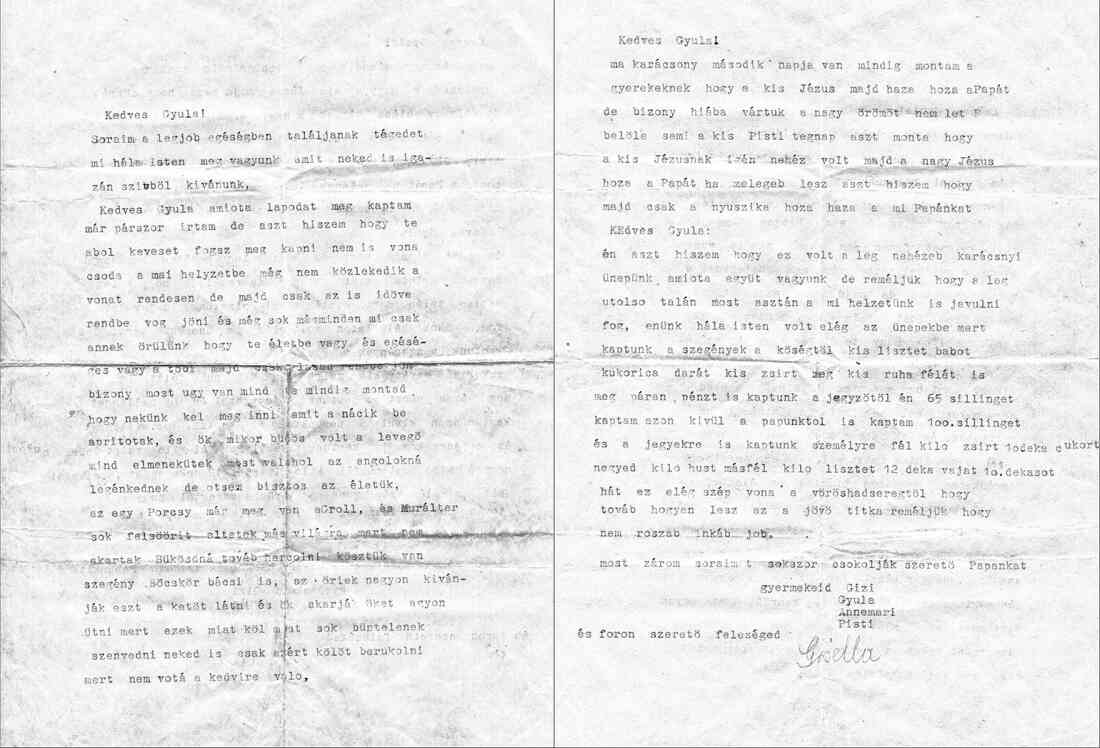 Kedves Gyula!
Soraim a legjob egéségben találjanak tégedet
mi hála isten meg vagyunk amit neked is iga-
zán szivböl kivánunk,
Kedves Gyula amiota lapodat meg kaptam
már párszor irtam de aszt hiszem hogy te
abol keveset fogsz meg kapni nem is vona
csoda a mai helyzetbe még nem közlekedik a
vonat rendesen de majd csak az is idöve
rendbe vog jöni és még sok másminden mi csak
annek örülünk hogy te életbe vagy és egésé-
ges vagy a töbi majd csak rendbe jön
bizony most ugy van mind te mindig montad
hogy nekünk kel meg inni amit a nácik be
apritotak, és ök mikor büdös volt a levegö
mind elmenekütek most valahol az angolokná
legénkednek de otsem bisztos az életük,
az egy Porcsy már meg van aGroll, és Murálter
sok felsöörit eltetek más világra mert nem
akartak Bükösdná továb harcolni köztük van
szegény Böcskör bácsi is, az öriek nagyon kiván-
ják eszt a katöt látni és ök akarják öket agyon
ütni mert ezek miat köl most sok büptelenek
szenvedni neked is csak azért kölöt berukolni
mert nem votá a kedvire valo,
Kedves Gyula!
ma karácsony második napja van mindig montam a
gyerekeknek hogy a kis Jézus majd haza hoza aPapát
de bizony hiába vártuk a nagy örömöt nem let
belöle sami a kis Pisti tegnap aszt monta hogy
a kis Jézusnak igén nehéz volt majd a nagy Jézus
hoza a Papát ha melegeb lesz aszt hiszem hogy
majd csak a nyuszika hoza haza a mi Papánkat
KEdves Gyula:
én aszt hiszem hogy ez volt a leg nehézeb karácsnyi
ünepünk amiota agyüt vagyunk de reméljük hogy a leg
utolso talán most asztán a mi helzetünk is javulni
fog, enünk hála isten volt elég az ünepekbe mert
kaptunk a szegények a köségtöl kis lisztet babot
kukorica darát kis zsirt meg kis ruha félét is
meg páran pénzt is kaptunk a jegyzötöl én 65 sillinget
kaptam azon kivül a papunktol is kaptam 1oo.sillinget
és a jegyekre is kaptunk személyre fél kilo zsirt 1odeka cukort
negyed kilo hust másfél kilo lisztet 12 deka vajat 1o.dekasot
hát ez elég szép vona a vöröshadseregtöl hogy
továb hogyen lesz az a jövö titka reméljük hogy
nem roszab inkáb job,
most zárom soraim t sokszor csokolják szeretö Papánkat
gyermekeid Gizi
Gyula
Annemari
Pisti
és foron szeretö feleséged
Gisella